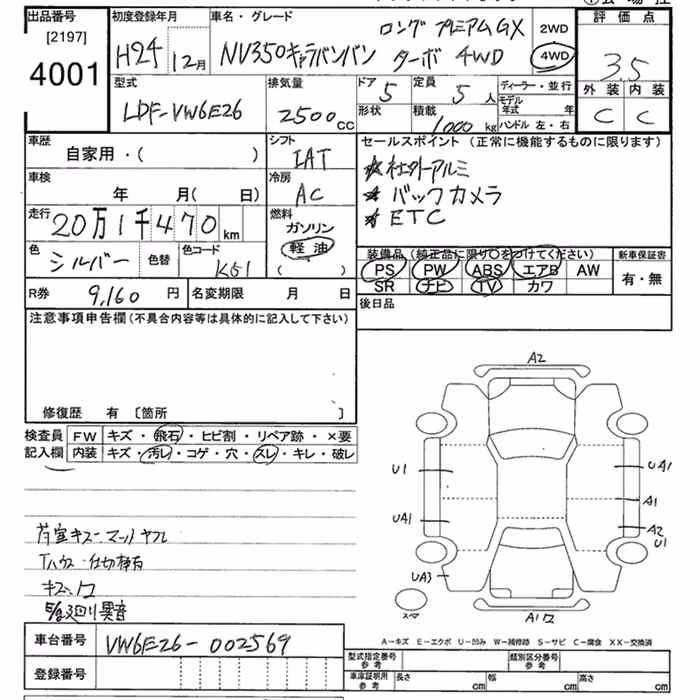 出品番号 初度登録年月 車名・グレード 評価点
[2197] ロング プレミアムGX 2WD
4001 H24 12月 NV350キャラバンバン ターボ 4WD 4WD 3.5
型式 排気量 ドア 定員 ディーラー・並行 外装 内装
LDF-VW6E26 2500cc 5 5人 モデル年式 年 C C
形状 積載 1000kg ハンドル 左・右
車歴 シフト セールスポイント(正常に機能するものに限ります)
自家用・( ) IAT ★社外アルミ
車検 冷房 ★バックカメラ
年 月( 日) AC ★ETC
走行 燃料
20万1千470km ガソリン
色 シルバー 色替 色コード K51 軽油
( )
装備品(純正品に限り○をつけてください) 新車保証書
PS PW ABS エアB AW 有・無
SR ナビ TV カワ
R券 9,160円 名変期限 月 日 後日品
注意事項申告欄(不具合内容等は具体的に記入して下さい)
修復歴 有 〔箇所 〕
検査員 FW キズ・飛石・ヒビ割・リペア跡・×要
記入欄 内装 キズ・汚レ・コゲ・穴・スレ・キレ・破レ
荷室キズ・マットヤブレ
Tハウス・仕切棒有
異音
A2
U1 UA1
A1
UA1 A2
U1
UA3
スペア
A1ワ
A-キズ E-エクボ U-凹み W-補修跡 S-サビ C-腐食 XX-交換済
車台番号 VW6E26-002569
型式指定番号 参考 類別区分番号 参考
登録番号 車庫証明用 参考 長さ cm 幅 cm 高さ cm